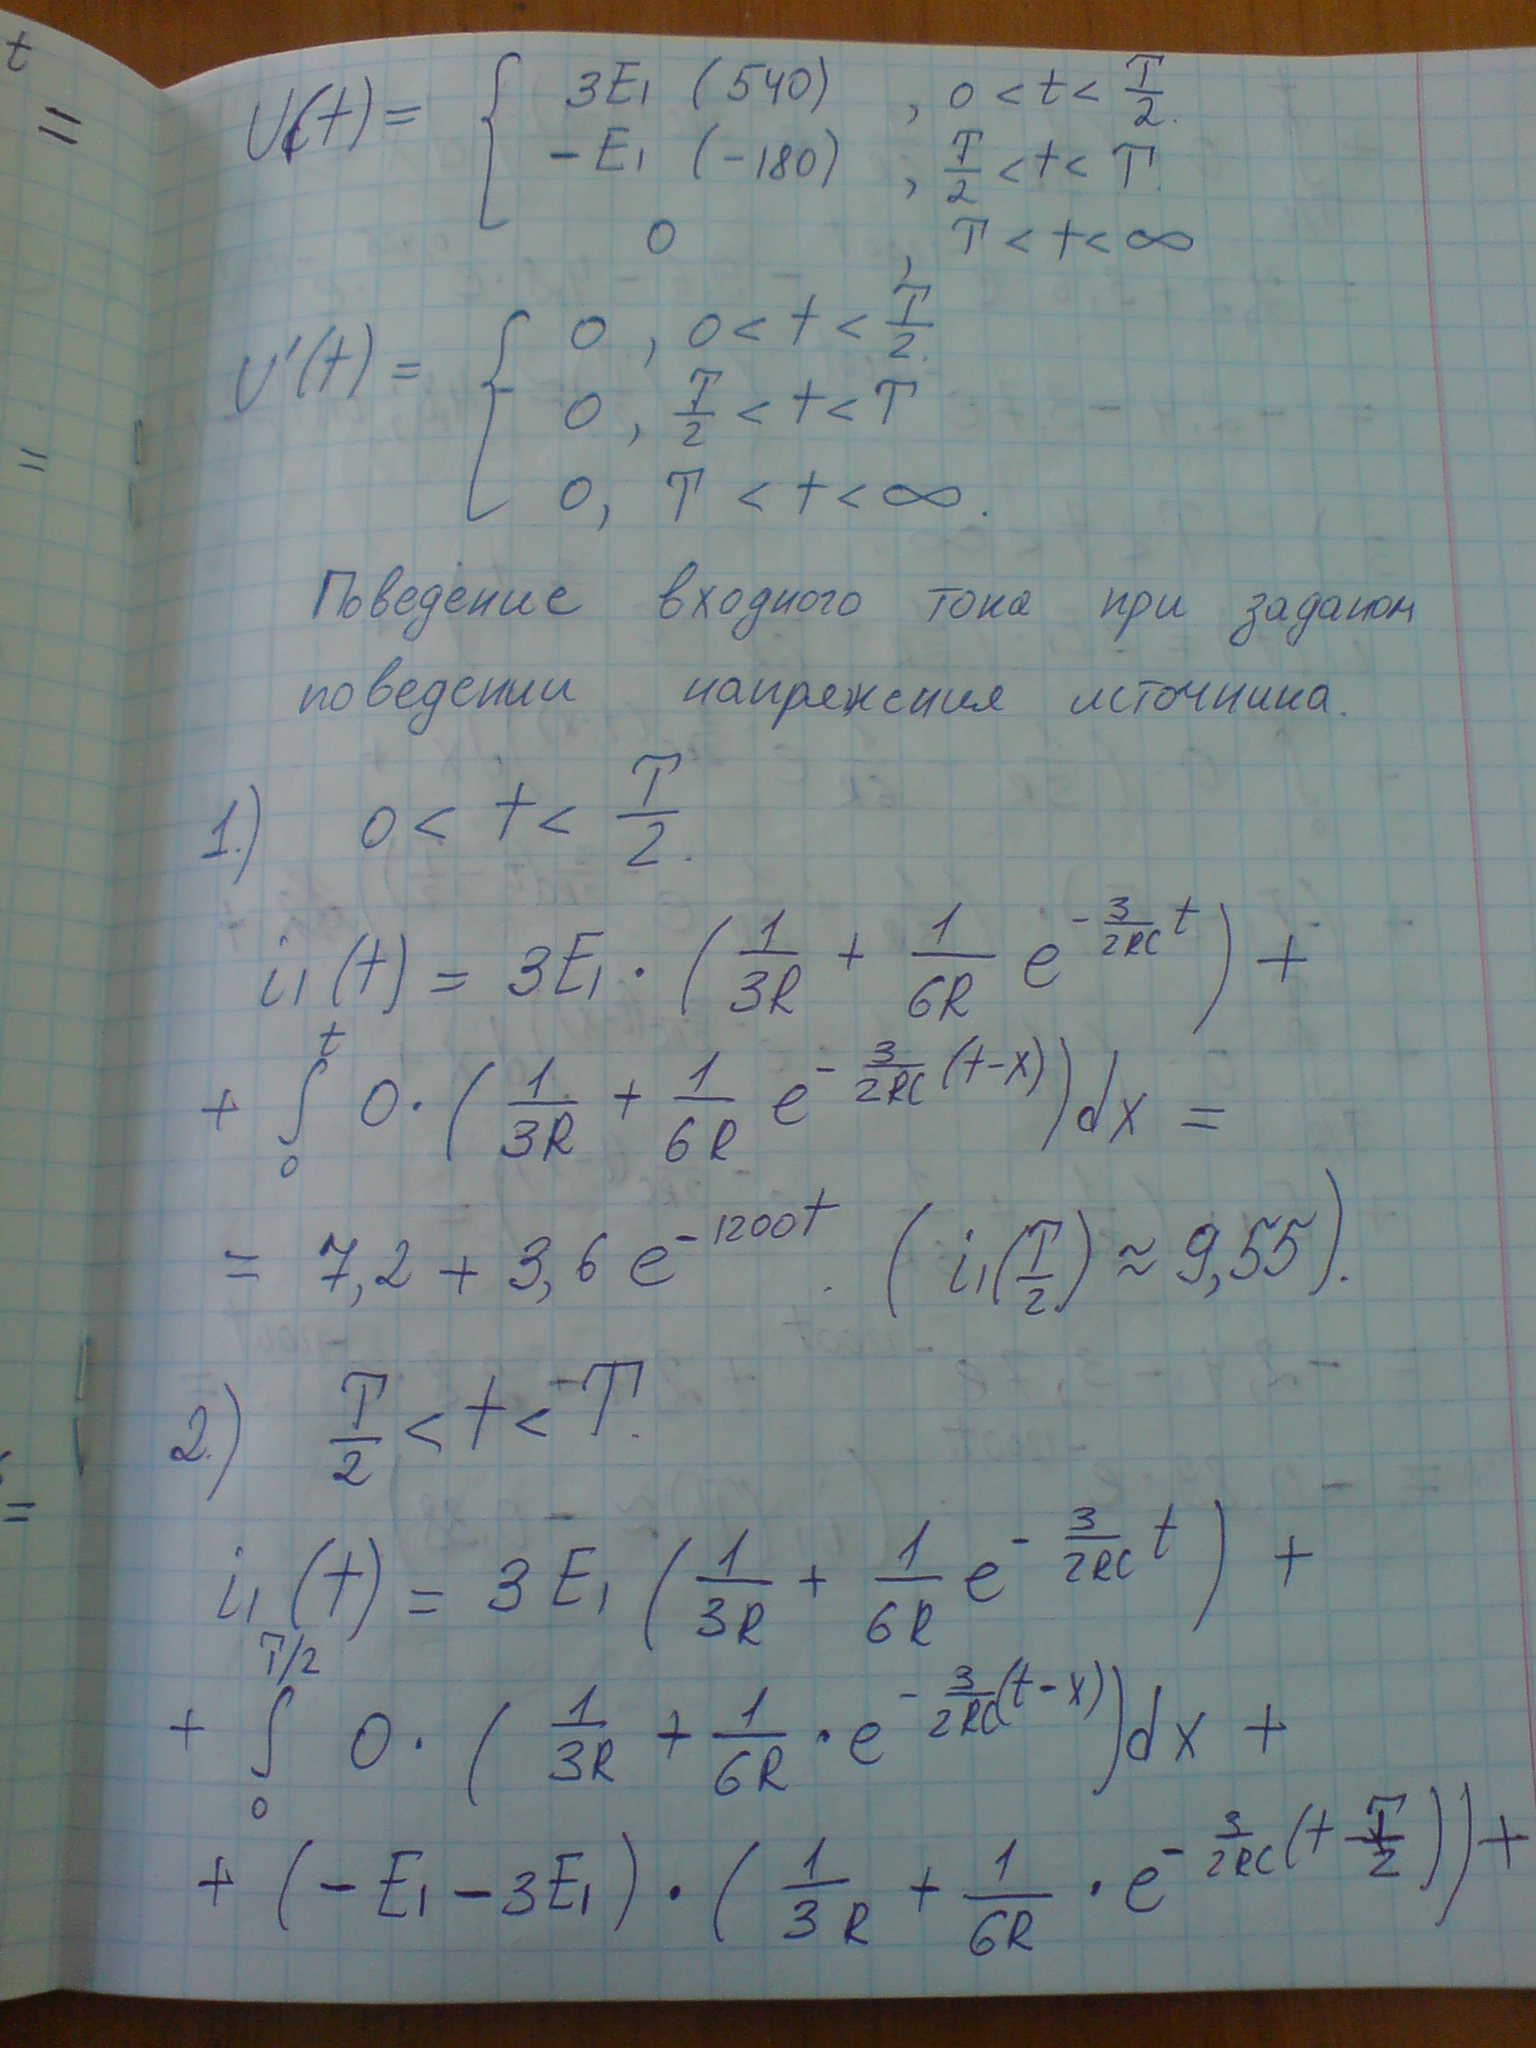 t
=
U(t) = { 3E₁ (540) , 0 < t < T/2.
-E₁ (-180) , T/2 < t < T.
0 , T < t < ∞
U'(t) = { 0 , 0 < t < T/2.
0 , T/2 < t < T
0, T < t < ∞.
=
Поведение входного тока при заданом
поведении напряжения источника.
1.) 0 < t < T/2.
i₁(t) = 3E₁ · (1/3R + 1/6R e^(-3/2RC t)) +
+ ∫₀^t 0 · (1/3R + 1/6R e^(-3/2RC (t-x))) dx =
= 7,2 + 3,6 e^(-1200t) . ( i₁(T/2) ≈ 9,55).
2.) T/2 < t < T.
=
i₁(t) = 3E₁ (1/3R + 1/6R e^(-3/2RC t)) +
+ ∫₀^(T/2) 0 · (1/3R + 1/6R · e^(-3/2RC (t-x))) dx +
+ (-E₁ - 3E₁) · (1/3R + 1/6R · e^(-3/2RC (t - T/2))) +